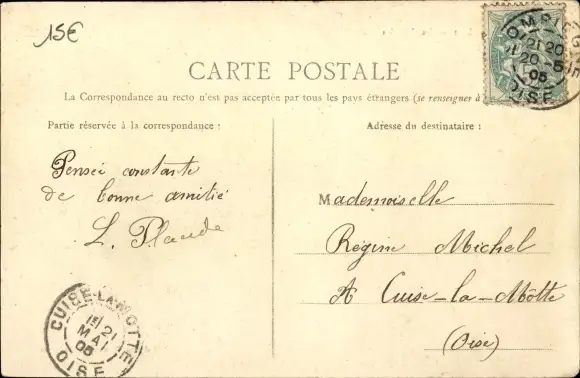 15€
CARTE POSTALE
La Correspondance au recto n'est pas acceptée par tous les pays étrangers (se renseigner à
Partie réservée à la correspondance :
Pensée constante
de bonne amitié
L. Plaude
Adresse du destinataire :
Mademoiselle
Régine Michel
A Cuise-la-Môtte
(Oise)
21 20
20 -5
05
OISE
CUISE-LA-MOTTE
21
MAI
05
OISE